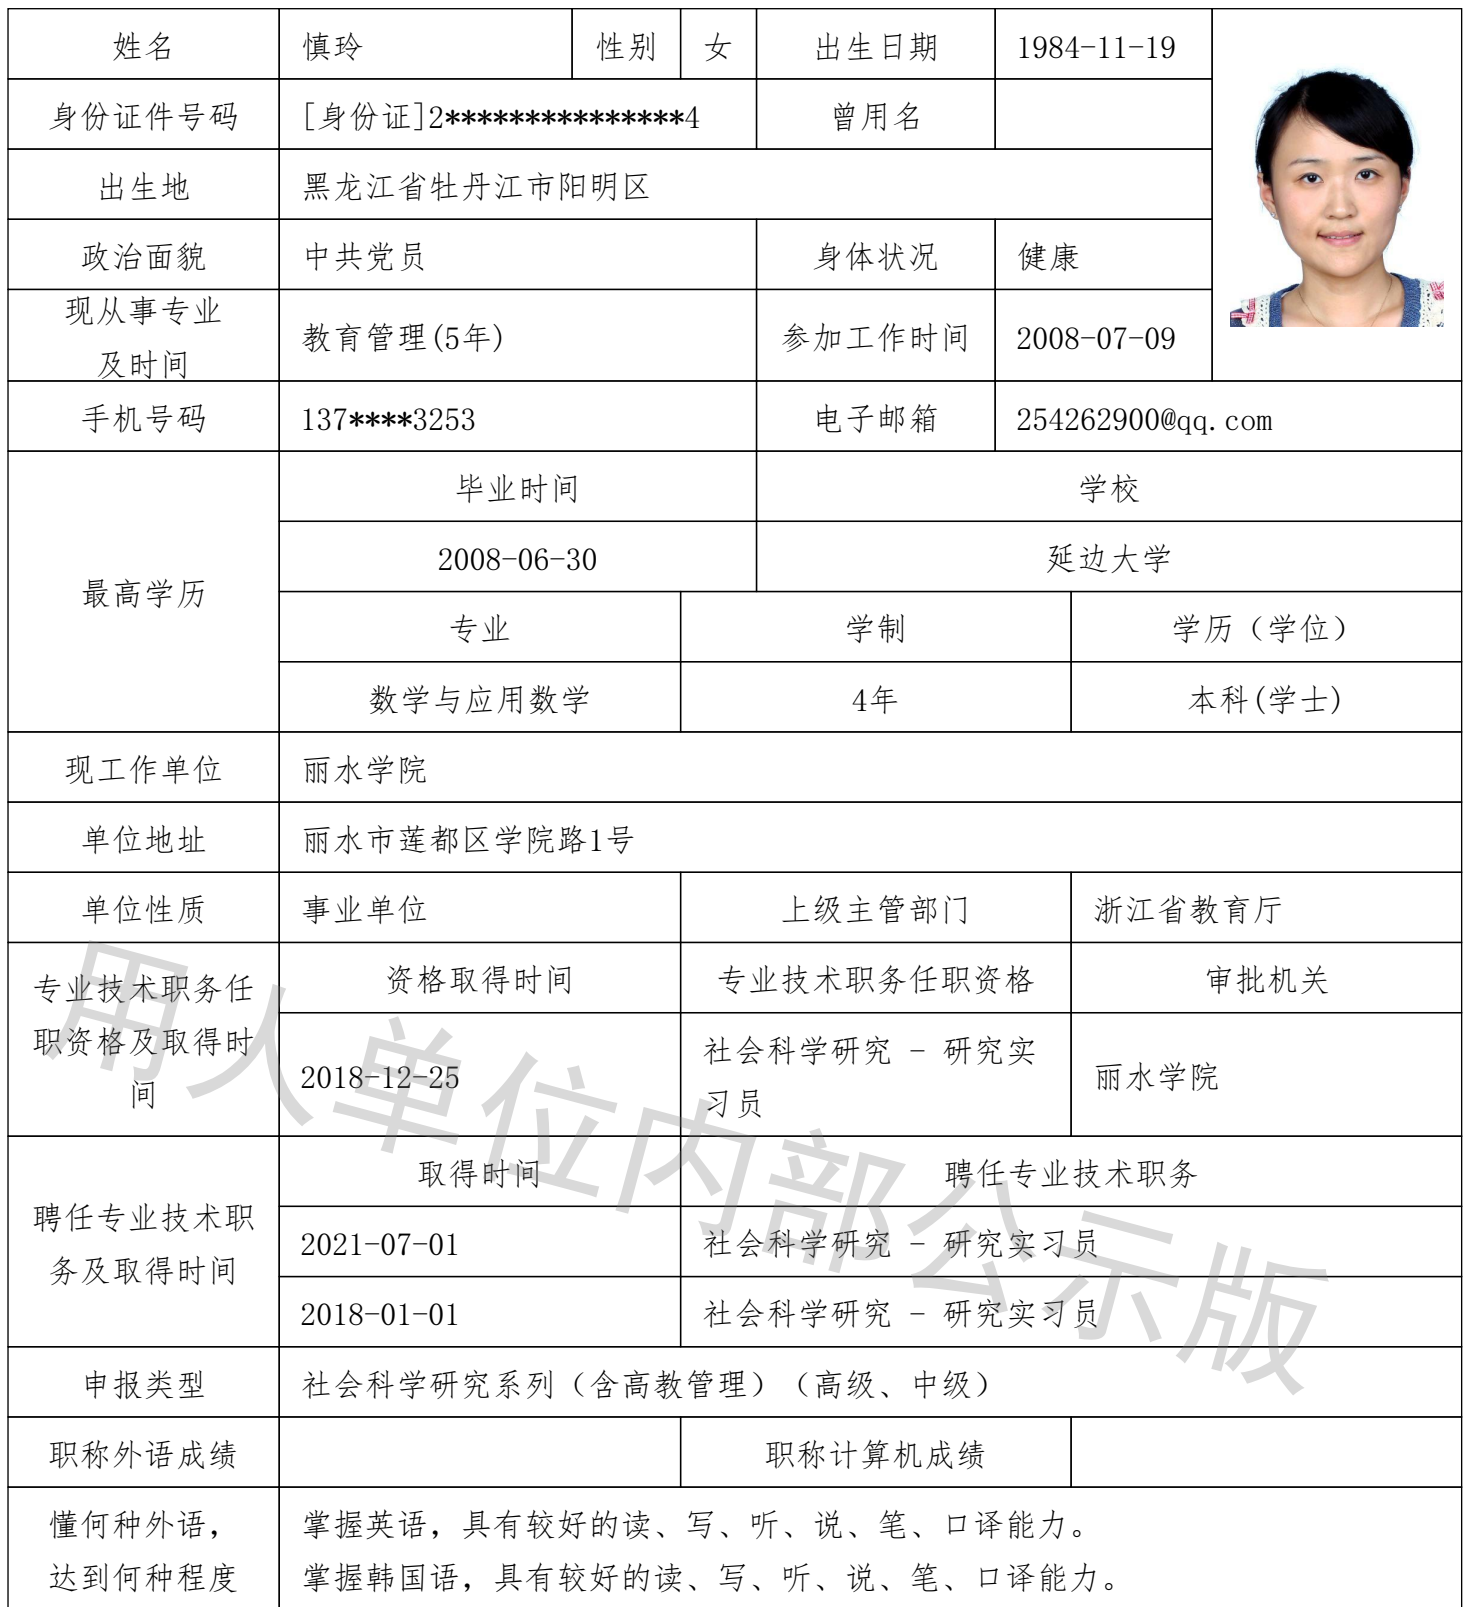 姓名 慎玲 性别 女 出生日期 1984-11-19
身份证件号码 [身份证]2***************4 曾用名
出生地 黑龙江省牡丹江市阳明区
政治面貌 中共党员 身体状况 健康
现从事专业
及时间
教育管理(5年) 参加工作时间 2008-07-09
手机号码 137****3253 电子邮箱 254262900@qq.com
最高学历
毕业时间 学校
2008-06-30 延边大学
专业 学制 学历（学位）
数学与应用数学 4年 本科(学士)
现工作单位 丽水学院
单位地址 丽水市莲都区学院路1号
单位性质 事业单位 上级主管部门 浙江省教育厅
专业技术职务任
职资格及取得时
间
资格取得时间 专业技术职务任职资格 审批机关
2018-12-25
社会科学研究 - 研究实
习员
丽水学院
聘任专业技术职
务及取得时间
取得时间 聘任专业技术职务
2021-07-01 社会科学研究 - 研究实习员
2018-01-01 社会科学研究 - 研究实习员
申报类型 社会科学研究系列（含高教管理）（高级、中级）
职称外语成绩 职称计算机成绩
懂何种外语，
达到何种程度
掌握英语，具有较好的读、写、听、说、笔、口译能力。
掌握韩国语，具有较好的读、写、听、说、笔、口译能力。
用人单位内部公示版